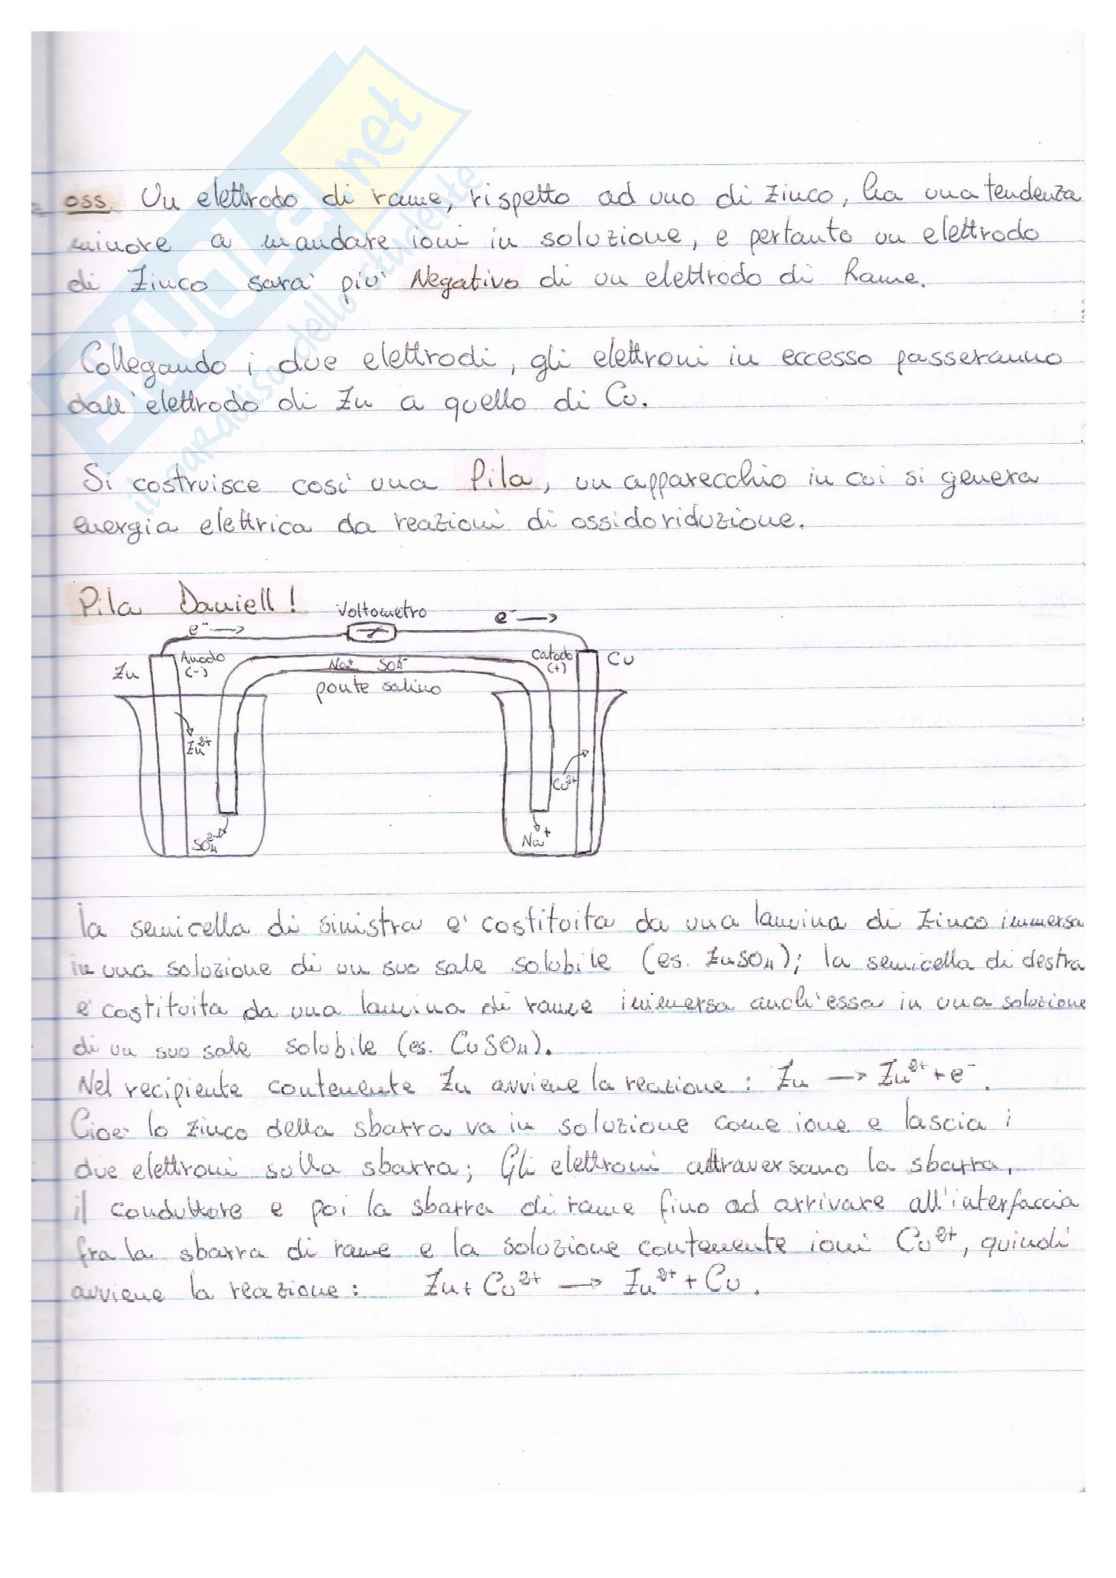 SKUOLA.net
il paradiso dello studente
oss. Un elettrodo di rame, rispetto ad uno di zinco, ha una tendenza
minore a mandare ioni in soluzione, e pertanto un elettrodo
di Zinco sara' piu' Negativo di un elettrodo di Rame.
Collegando i due elettrodi, gli elettroni in eccesso passeranno
dall'elettrodo di Zn a quello di Cu.
Si costruisce cosi' una Pila, un apparecchio in cui si genera
energia elettrica da reazioni di ossidoriduzione.
Pila Daniell!
Voltometro
e⁻ →
e⁻ →
Zn
Anodo
(-)
Na⁺ SO₄⁻
ponte salino
Catodo
(+)
Cu
Zn²⁺
Cu²⁺
SO₄²⁻
Na⁺
la semicella di sinistra e' costituita da una lamina di Zinco immersa
in una soluzione di un suo sale solubile (es. ZnSO₄); la semicella di destra
e' costituita da una lamina di rame immersa anch'essa in una soluzione
di un suo sale solubile (es. CuSO₄).
Nel recipiente contenente Zn avviene la reazione: Zn → Zn²⁺ + e⁻.
Cioe' lo zinco della sbarra va in soluzione come ione e lascia i
due elettroni sulla sbarra; Gli elettroni attraversano la sbarra,
il conduttore e poi la sbarra di rame fino ad arrivare all'interfaccia
fra la sbarra di rame e la soluzione contenente ioni Cu²⁺, quindi
avviene la reazione: Zn + Cu²⁺ → Zn²⁺ + Cu.